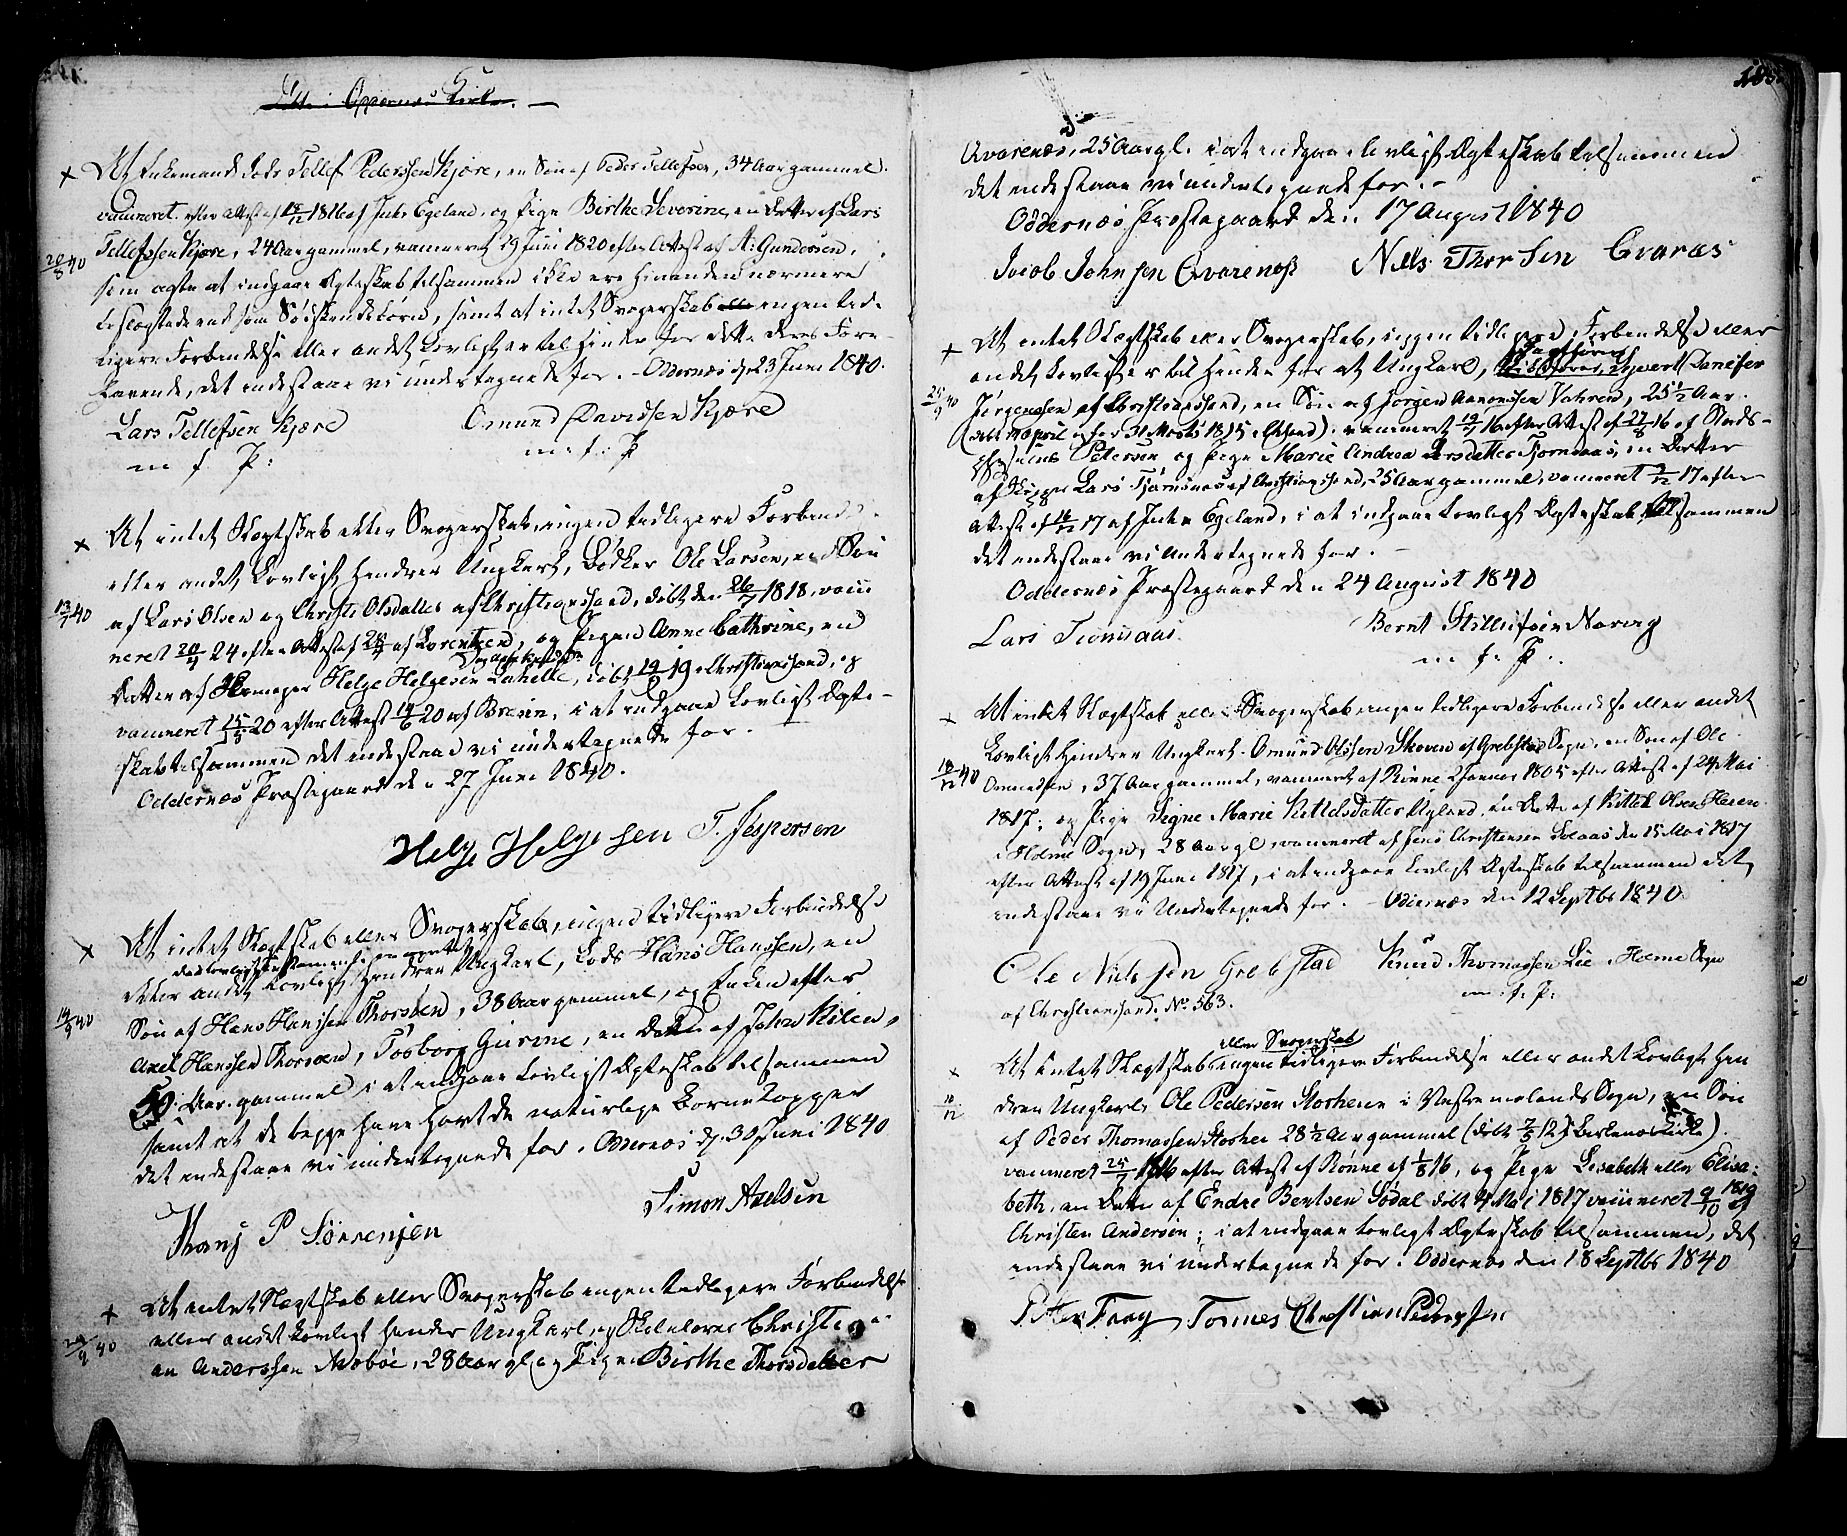 At Enkemand Lods Tellef Pederssen Kjøre, en Søn af Peder Tellefsen, 34 Aar gammel.
vaccineret efter Attest af 1816 af Jnk: Egeland, og Pige Birthe Severine, en Datter af Lars
20/8 40
Tellefssen Kjøre, 24 Aar gammel, vaccineret 29 Juni 1820 efter Attest af A: Gundersen,
som agte at indgaae Ægteskab tilsammen ikke ere hinanden nærmere
beslægtede end som Sødskendebørn, samt at intet Svogerskab ingen tid-
ligere Forbindelse eller andet Lovligt er til Hinder for dette deres Fore-
havende, det indestaae vi undertegnede for. - Oddernæs d. 23 Juni 1840.
Lars Tellefsen Kjøre Omund Davidsen Kjøre
m. f. P: m: f: P
At intet Slægtskab eller Svogerskab, ingen tidligere Forbindelse
eller andet Lovligt hindrer Ungkarl, Bødker Ole Larsen, en Søn
13/7 40
af Lars Olsen og Christi Olsdatter af Christianssand, døbt den 26/7 1818, vacci
neret 20/4 24 efter Attest af af Lorentzen, og Pigen Anne Cathrine, en
Datter af Helge Helgesen Lahelle, døbt 19 i Christianssand, og
vaccineret 15/5 20 efter Attest 14/6 20 af Brein, i at indgaae Lovligt Ægte-
skab tilsammen det indestaae vi undertegnede for.
Oddernæs Præstegaard den 27 Juni 1840.
Helge Helgesen T. Jespersen
At intet Slægtskab eller Svogerskab, ingen tidligere Forbindelse
eller andet Lovligt hindrer Ungkarl, Lods Hans Hanssen, en
Søn af Hans Hanssen Thorsøen, 38 Aar gammel, og Enken efter
Axel Hanssen Thorsøen, Torborg Gurine, en Datter af John Kilen,
50 Aar gammel i at indgaae Lovligt Ægteskab tilsammen
samt at de begge have havt de naturlige Børnekopper
det indestaae vi undertegnede for. Oddernæs d. 30 Juni 1840
Simon Axelsen
Hans P Sörrensen
At intet Slægtskab eller Svogerskab ingen tidligere Forbindelse
eller andet Lovligt hinder Ungkarl, og Skolelærer Christi-
an Anderssen Aabøe, 28 Aar gl. og Pigen Birthe Thorsdatter
Qvarenæs, 25 Aar gl. i at indgaae lovligt Ægteskab tilsammen
det indestaae vi undertegnede for. -
Oddernæs Præstegaard den 17 August 1840
Jacob Johnsen Qvarenæs Nells Thorsen Qvaræs
At intet Slægtskab eller Svogerskab, ingen tidligere Forbindelse eller
andet Lovligt er til Hinder for at Ungkarl, Sivert Danifer
Jørgenssen af Christianssand, en Søn af Jørgen Aanonssen Vatrend, 25 1/2 Aar.
vaccineret 16 efter Attest af 27/8 16 af Stads-
Petersen og Pige Marie Andrea Larsdatter Tjomsaas, en Datter
af Lars Tjomsaas af Christianssand, 25 Aar gammel, vaccineret 17 efter
Attest af 17 af Jnk: Egeland, i at indgaae Lovligt Ægteskab tilsammen
det indestaae vi undertegnede for. -
Oddernæs Præstegaard den 24 August 1840
Lars Tiomsaas. Bernt Norberg
m. f. P.
At intet Slægtskab eller Svogerskab ingen tidligere Forbindelse eller andet
Lovligt hindrer Ungkarl Omund Olssen Skoven af Grebstad Sogn, en Søn af Ole
Omundsen, 37 Aar gammel, vaccineret af Rinne 2 Januar 1805 efter Attest af 24 Mai
1817; og Pige Signe Marie Kittelsdatter Ugland, en Datter af Kittel Olsen
i Holme Sogn, 28 Aar gl. vaccineret af Jens Christensen Solaas den 15 Mai 1817
efter Attest af 19 Juni 1817, i at indgaae Lovligt Ægteskab tilsammen det
indestaae vi Undertegnede for. - Oddernæs den 12 Septbr 1840.
Ole Nielssen Grebstad Knud Thomassen Lie i Holme Sogn
af Christianssand. No 563. m. f. P.
eller Svogerskab
At intet Slægtskab ingen tidligere Forbindelse eller andet Lovligt hin
drer Ungkarl Ole Pedersen Storheie i Vestre molands Sogn, en Søn
af Peder Thomassen Storheie 28 1/2 Aar gammel (døbt 12 i Birkenæs Kirke).
vaccineret 25/7 1816 efter Attest af Rønne af 1/8 16, og Pige Lisabeth eller Elisa:
beth, en Datter af Endre Bentsen Sødal døbt Mai 1817 vaccineret 9/10 1819 af
Christen Andersen; i at indgaae Lovligt Ægteskab tilsammen, det
indestaae vi undertegnede for. Oddernæs den 18 Septbr 1840
Petter Frøy Tormes Christian Pederssen